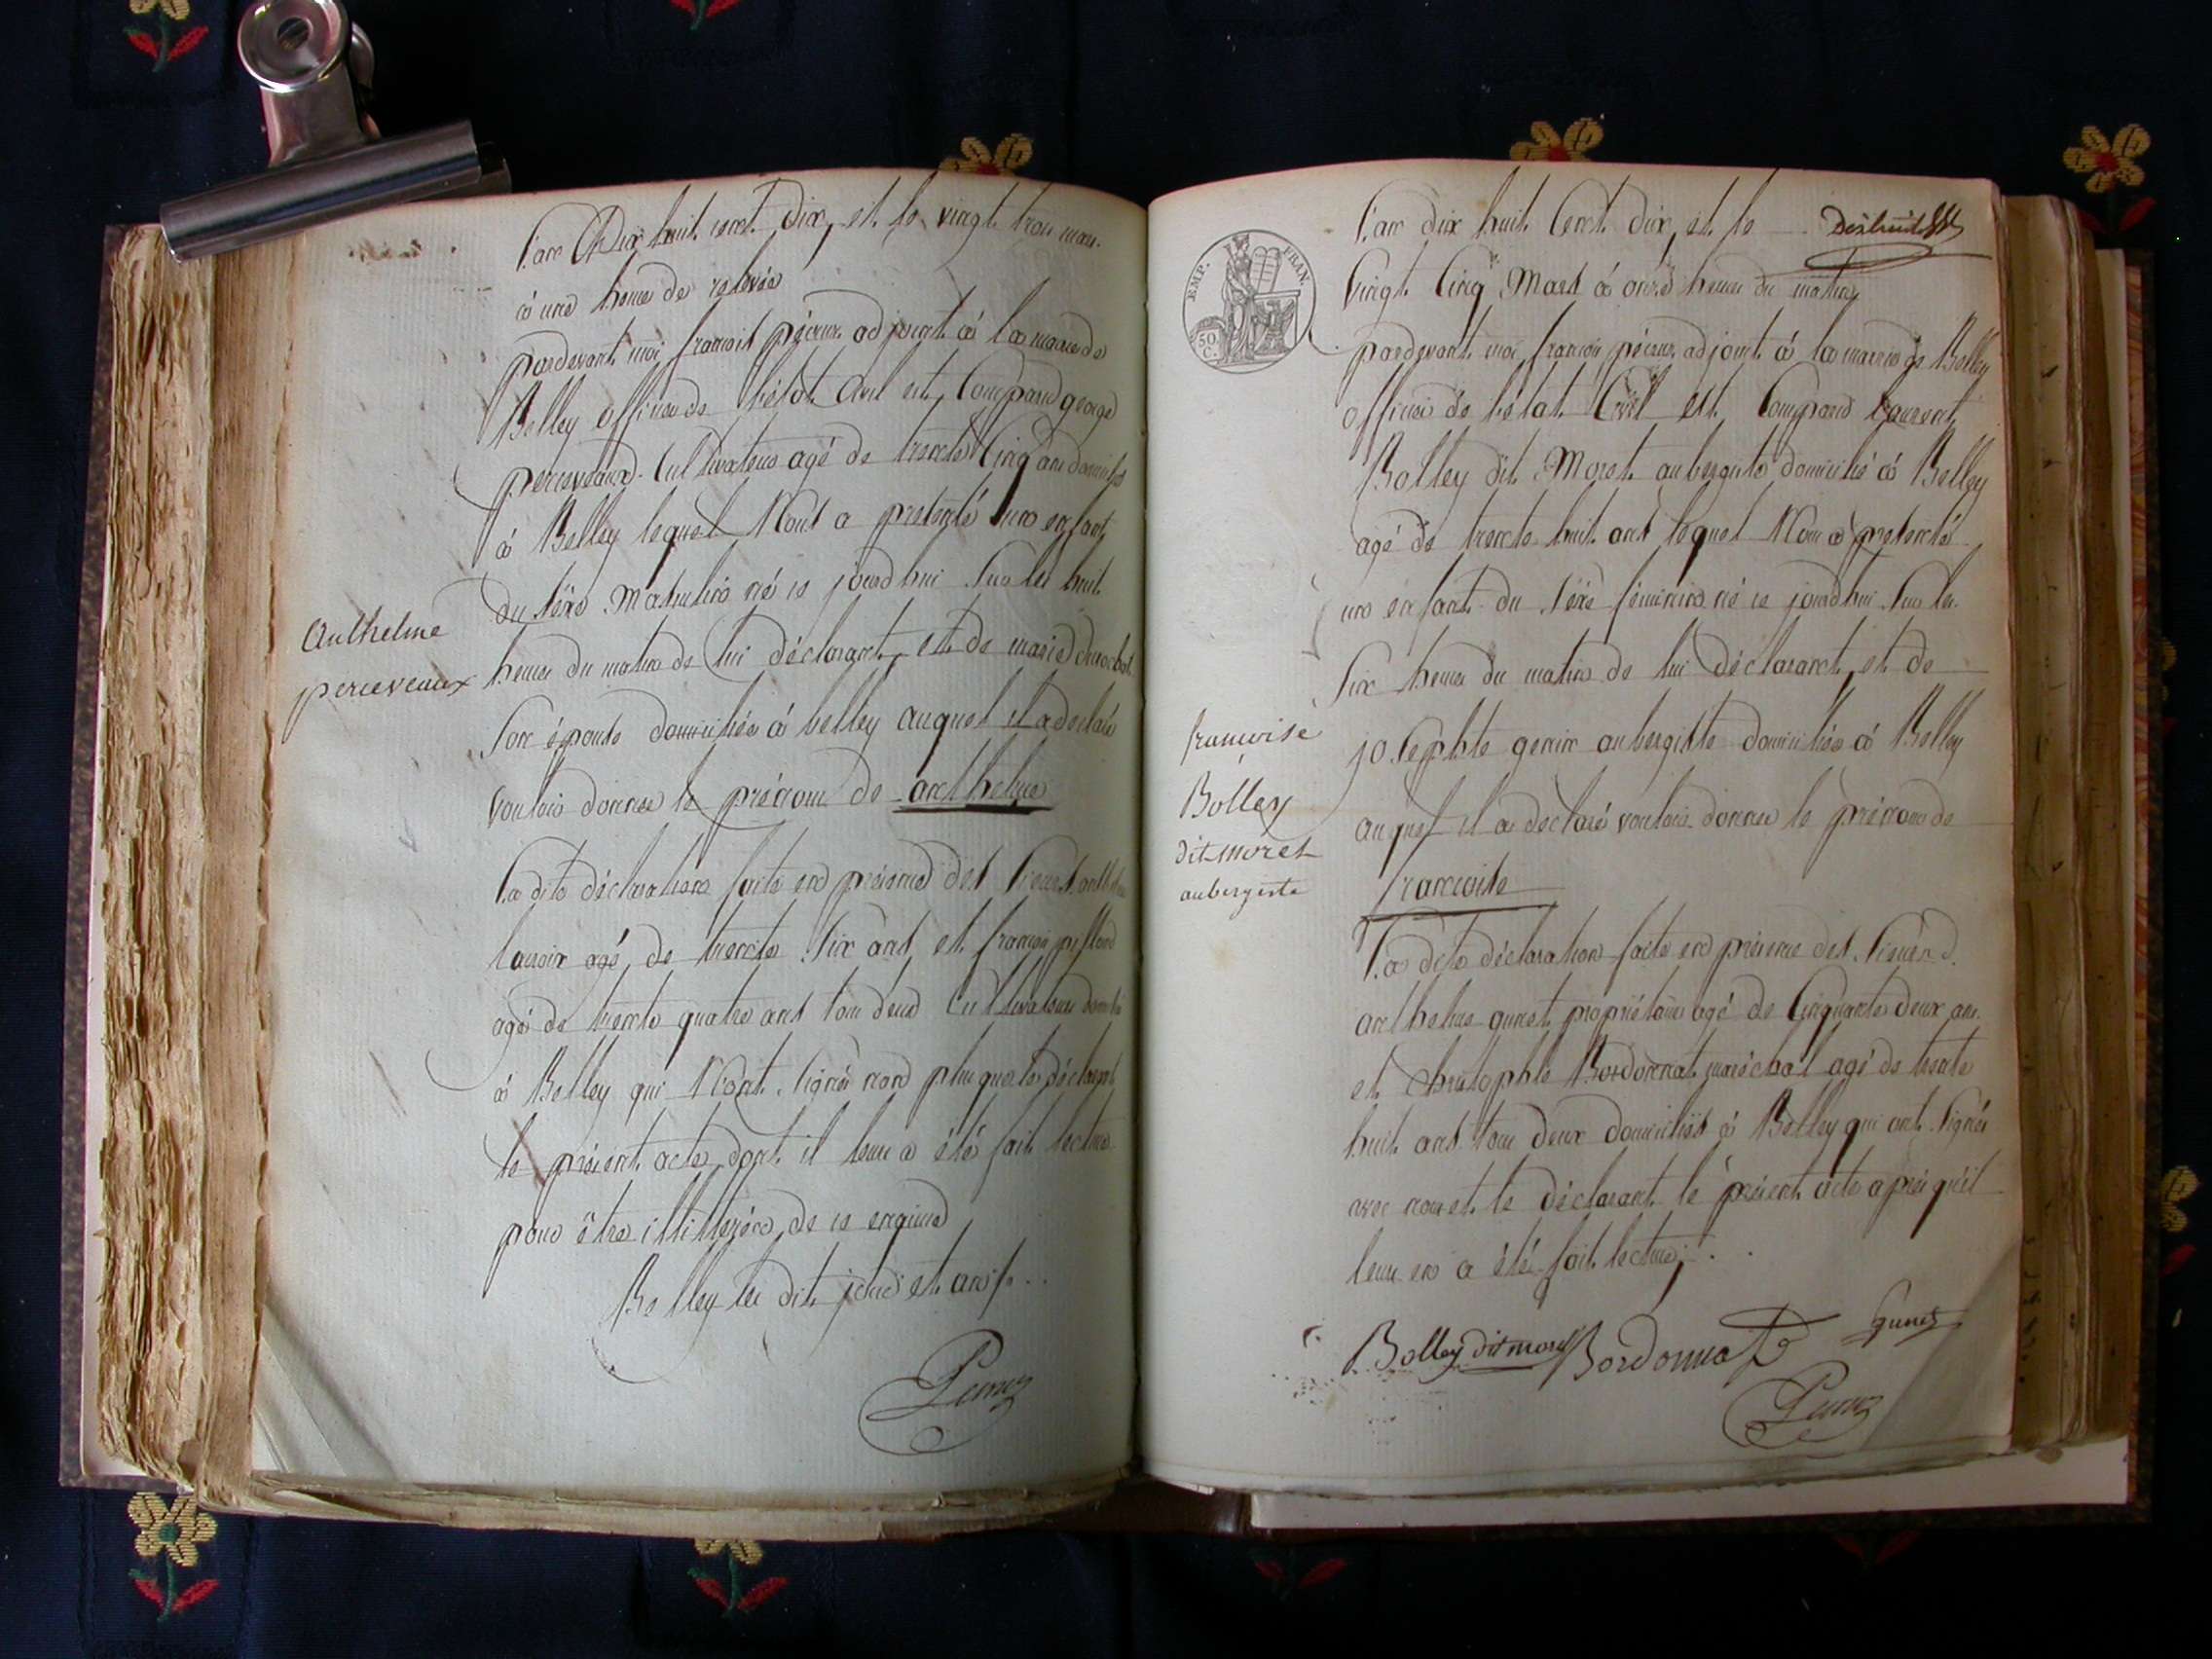 L'an Dix huit cent dix, et le vingt trois mars
à une heure de relevée
pardevant moi françois adjoint à la mairie de
Belley officier de l'état Civil est Comparu george
perceveaux Cultivateur agé de trente Cinq ans domicilié
à Belley lequel Nous a presenté un enfant
du sexe Masculin né ce jourdhui sur les huit
heures du matin de lui déclarant, et de marie
Anthelme
perceveaux
son épouse domiciliée à belley auquel il a déclaré
vouloir donner le prénom de anthelme
La dite déclaration faite en présence des Sieurs
agé de trente six ans, et françois
agé de trente quatre ans tous deux Cultivateurs
à Belley qui N'ont signés non plus que le déclarant
le présent acte dont il leur a été fait lecture
pour être illitérés, de ce enquis
Belley les dits jour et an
L'an dix huit Cent dix, et le
EMP. FRAN.
50 C.
Vingt Cinq Mars à onze heures du matin
pardevant moi françois adjoint à la mairie de Belley
officier de l'état Civil est Comparu Laurent
Bolley dit Moret aubergiste domicilié à Belley
agé de trente huit ans lequel Nous a presenté
un enfant du sexe féminin né ce jourdhui sur les
six heures du matin de lui déclarant, et de
josephte aubergiste domiciliée à Belley
auquel il a déclaré vouloir donner le prénom de
françoise
françoise
Bolley
dit moret
aubergiste
La dite déclaration faite en présence des Sieurs
anthelme gunet propriétaire agé de Cinquante deux ans
et christophle Bordonnat maréchal agé de trente
huit ans tous deux domiciliés à Belley qui ont signés
avec nous et le déclarant le présent acte après qu'il
leur en a été fait lecture
Bolley dit moret Bordonnat Gunet